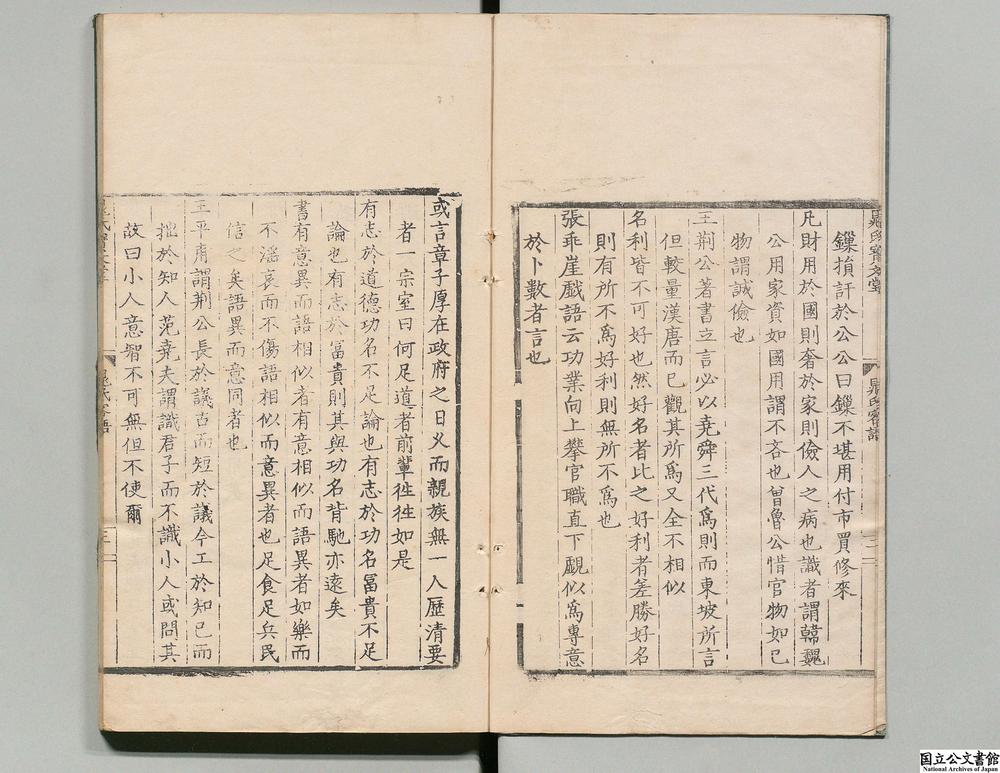 鏁損訐於公公曰鏁不堪用付市買修來
凡財用於國則奢於家則儉人之病也識者謂韓魏
公用家資如國用謂不吝也曾魯公惜官物如己
物謂誠儉也
王荊公著書立言必以堯舜三代爲則而東坡所言
但較量漢唐而已觀其所爲又全不相似
名利皆不可好也然好名者比之好利者差勝好名
則有所不爲好利則無所不爲也
張乖崖戲語云功業向上攀官職直下覷似爲專意
於卜數者言也
或言章子厚在政府之日久而親族無一人歷清要
者一宗室曰何足道者前輩徃徃如是
有志於道德功名不足論也有志於功名冨貴不足
論也有志於冨貴則其與功名背馳亦遠矣
書有意異而語相似者有意相似而語異者如樂而
不滛哀而不傷語相似而意異者也足食足兵民
信之矣語異而意同者也
王平甫謂荊公長於議古而短於議今工於知己而
拙於知人范堯夫謂識君子而不識小人或問其
故曰小人意智不可無但不使爾
晁氏客語
国立公文書館
National Archives of Japan